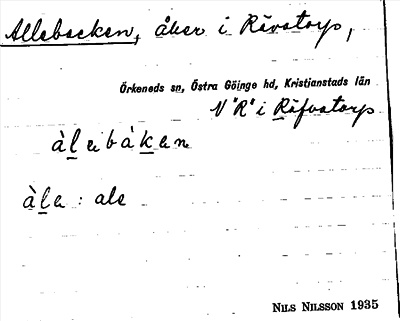 Allebacken, åker i Rävatorp,
Örkeneds sn, Östra Göinge hd, Kristianstads län
N "R" i Räfvatorp
àlebàken
àle : ale
NILS NILSSON 1935